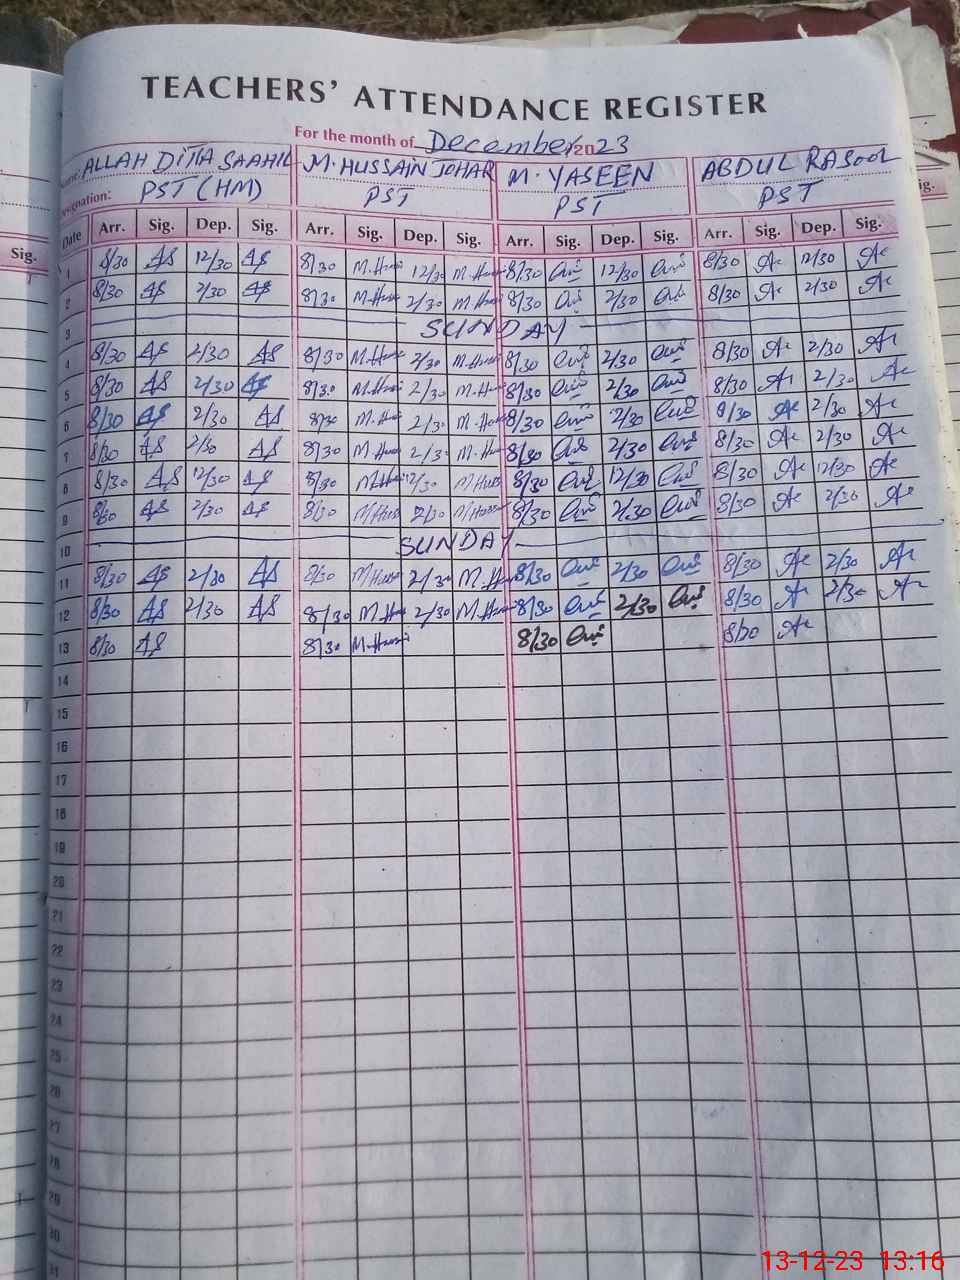 TEACHERS' ATTENDANCE REGISTER
For the month of December 2023
Name: ALLAH DITTA SAAHIL M. HUSSAIN JOHAR M. YASEEN ABDUL RASOOL
Designation: PST (HM) PST PST PST
Date Arr. Sig. Dep. Sig. Arr. Sig. Dep. Sig. Arr. Sig. Dep. Sig. Arr. Sig. Dep. Sig.
1 8/30 AS 12/30 AS 8/30 12/30 8/30 12/30 8/30 12/30
2 8/30 AS 2/30 AS 8/30 2/30 8/30 2/30 8/30 2/30
3 SUNDAY
4 8/30 AS 2/30 AS 8/30 2/30 8/30 2/30 8/30 2/30
5 8/30 AS 2/30 AS 8/30 2/30 8/30 2/30 8/30 2/30
6 8/30 AS 2/30 AS 8/30 2/30 8/30 2/30 8/30 2/30
7 8/30 AS 2/30 AS 8/30 2/30 8/30 2/30 8/30 2/30
8 8/30 AS 12/30 AS 8/30 12/30 8/30 12/30 8/30 12/30
9 8/30 AS 2/30 AS 8/30 2/30 8/30 2/30 8/30 2/30
10 SUNDAY
11 8/30 AS 2/30 AS 8/30 2/30 8/30 2/30 8/30 2/30
12 8/30 AS 2/30 AS 8/30 2/30 8/30 2/30 8/30 2/30
13 8/30 AS 8/30 8/30 8/30
14
15
16
17
18
19
20
21
22
23
24
25
26
27
28
29
30
31
Sig.
ig.
13-12-23 13:16